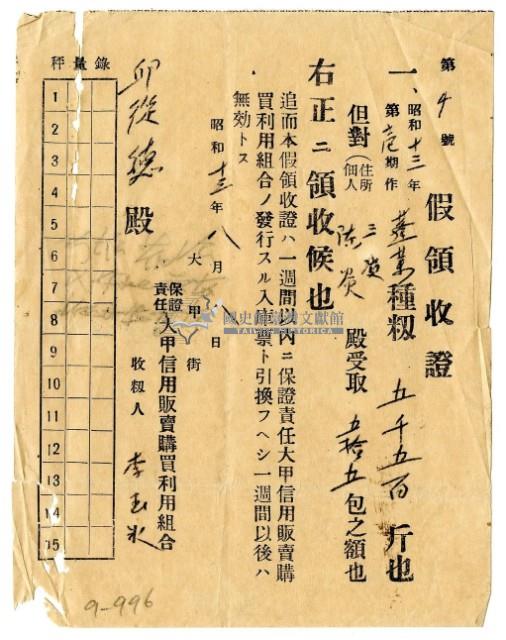 第 4 號
假領收證
一、昭和十三年第壱期作 蓬萊種籾 五千五百斤也
但對(住所 佃人 三炭 陳炭 殿受取 五拾五包之額也
右正ニ領收候也
追而本假領收證ハ一週間以內ニ保證責任大甲信用販賣購
買利用組合ノ發行スル入庫票ト引換フヘシ一週間以後ハ
無効トス
昭和十三年八月 日
大甲街
保證責任大甲信用販賣購買利用組合
收籾人 李玉
邱從德 殿
秤量錄
1
2
3
4
5
6
7
8
9
10
11
12
13
14
15
國史館臺灣文獻館
TAIWAN HISTORICA
9-996